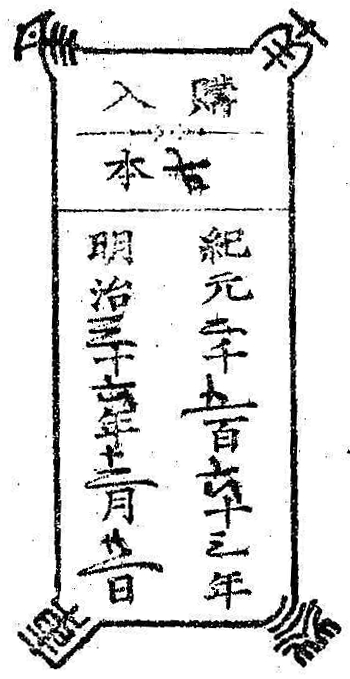 購入
古本
紀元二千五百六十三年
明治三十六年十二月廿日